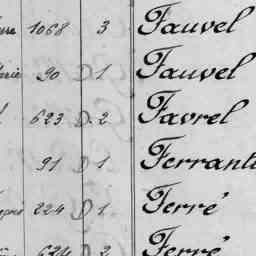 1068 3 Fauvel
90 D 1 Fauvel
623 D. 2 Favrel
91 D 1 Ferrant
224 D 1 Ferré
674 D 2 Ferré